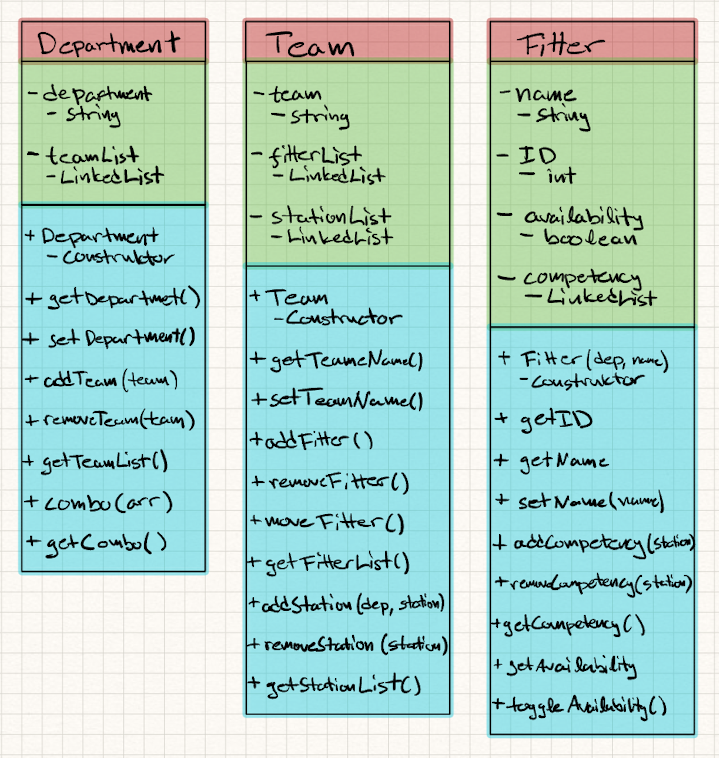 Department
- department
- string
- teamList
- LinkedList
+ Department
- Construktor
+ getDepartmet()
+ setDepartment()
+ addTeam(team)
+ removeTeam(team)
+ getTeamList()
+ combo(arr)
+ getCombo()
Team
- team
- string
- fitterList
- LinkedList
- stationList
- LinkedList
+ Team
- Constructor
+ getTeameName()
+ setTeamName()
+ addFitter()
+ removeFitter()
+ moveFitter()
+ getFitterList()
+ addStation(dep, station)
+ removeStation(station)
+ getStationList()
Fitter
- name
- string
- ID
- int
- availability
- boolean
- competency
- LinkedList
+ Fitter(dep, name)
- Constructor
+ getID
+ getName
+ setName(name)
+ addCompetency(station)
+ removeCompetency(station)
+ getCompetency()
+ getAvailability
+ toggleAvailability()